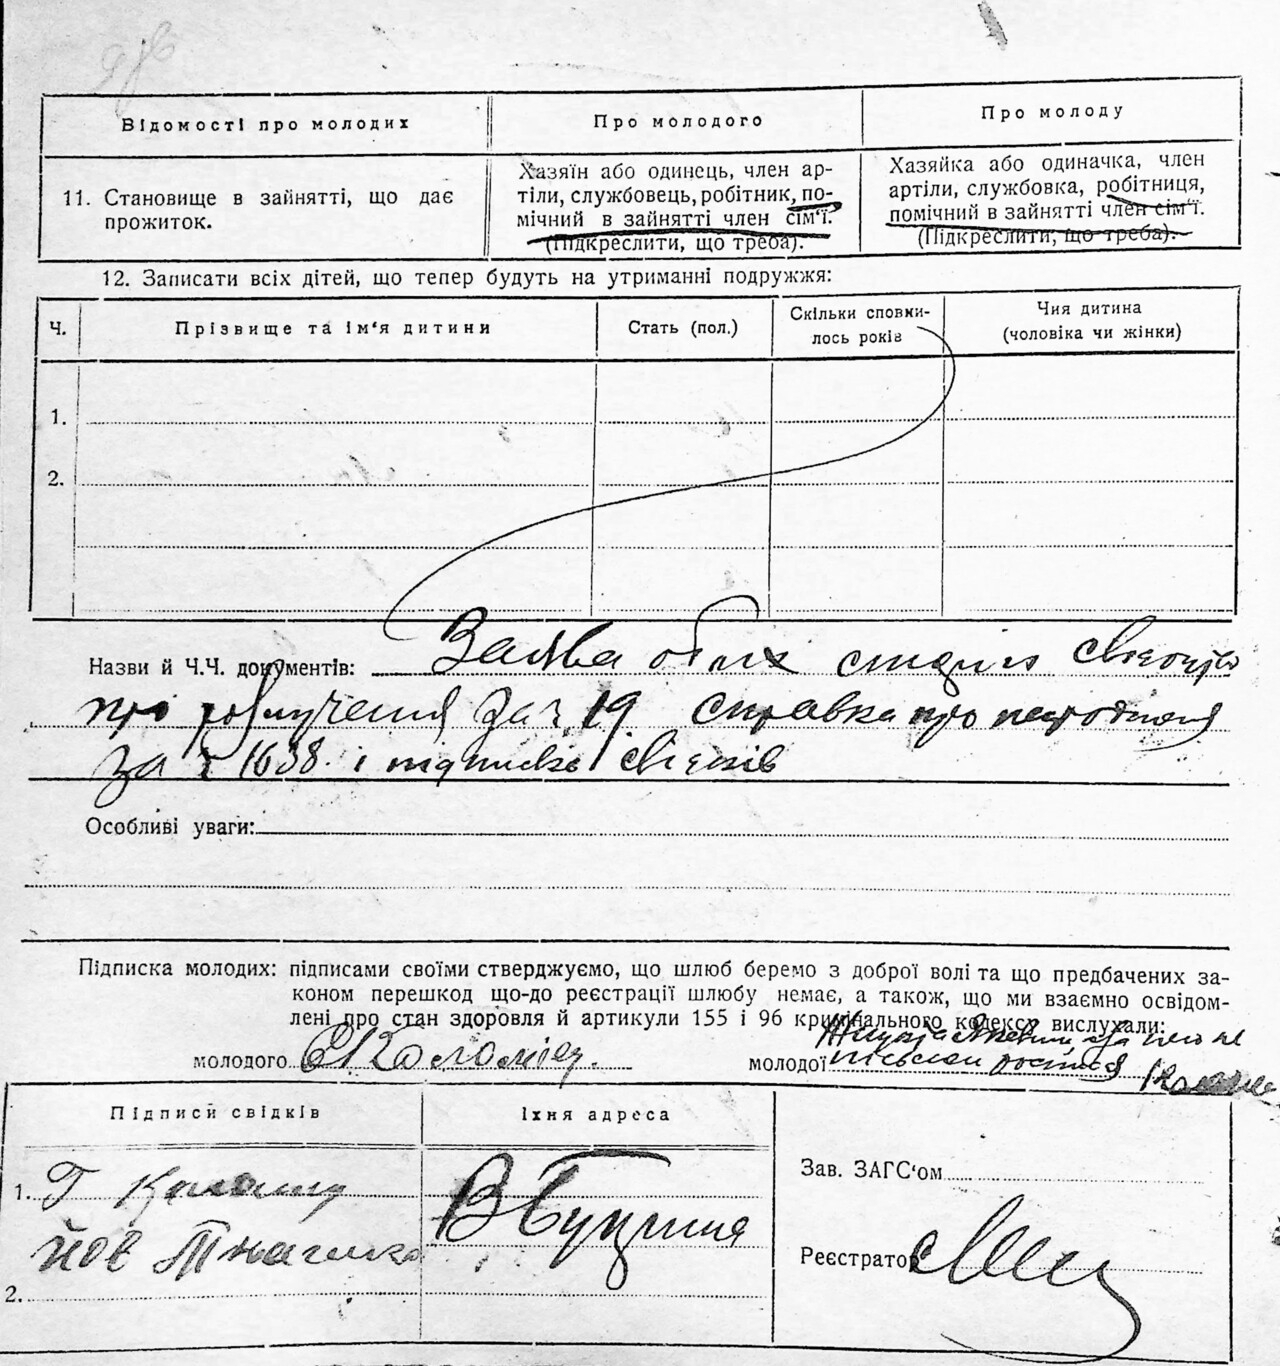 Відомості про молодих
Про молодого
Про молоду
11. Становище в зайнятті, що дає
прожиток.
Хазяїн або одинець, член ар-
тіли, службовець, робітник, по-
мічний в зайнятті член сім'ї.
(Підкреслити, що треба).
Хазяйка або одиначка, член
артіли, службовка, робітниця,
помічний в зайнятті член сім'ї.
(Підкреслити, що треба).
12. Записати всіх дітей, що тепер будуть на утриманні подружжя:
Ч.
Прізвище та ім'я дитини
Стать (пол.)
Скільки сповни-
лось років
Чия дитина
(чоловіка чи жінки)
1.
2.
Назви й Ч.Ч. документів: Заява обох
про розлучення за ч 19 справка про
за ч 1638. і підписка свідків
Особливі уваги:
Підписка молодих: підписами своїми стверджуємо, що шлюб беремо з доброї волі та що предбачених за-
коном перешкод що-до реєстрації шлюбу немає, а також, що ми взаємно освідом-
лені про стан здоровля й артикули 155 і 96 кримінального кодексу вислухали:
молодого Коломієц.
молодої
Підписи свідків
Їхня адреса
1. Г
Йов Ткаченко
2.
Зав. ЗАГС'ом
Реєстратор